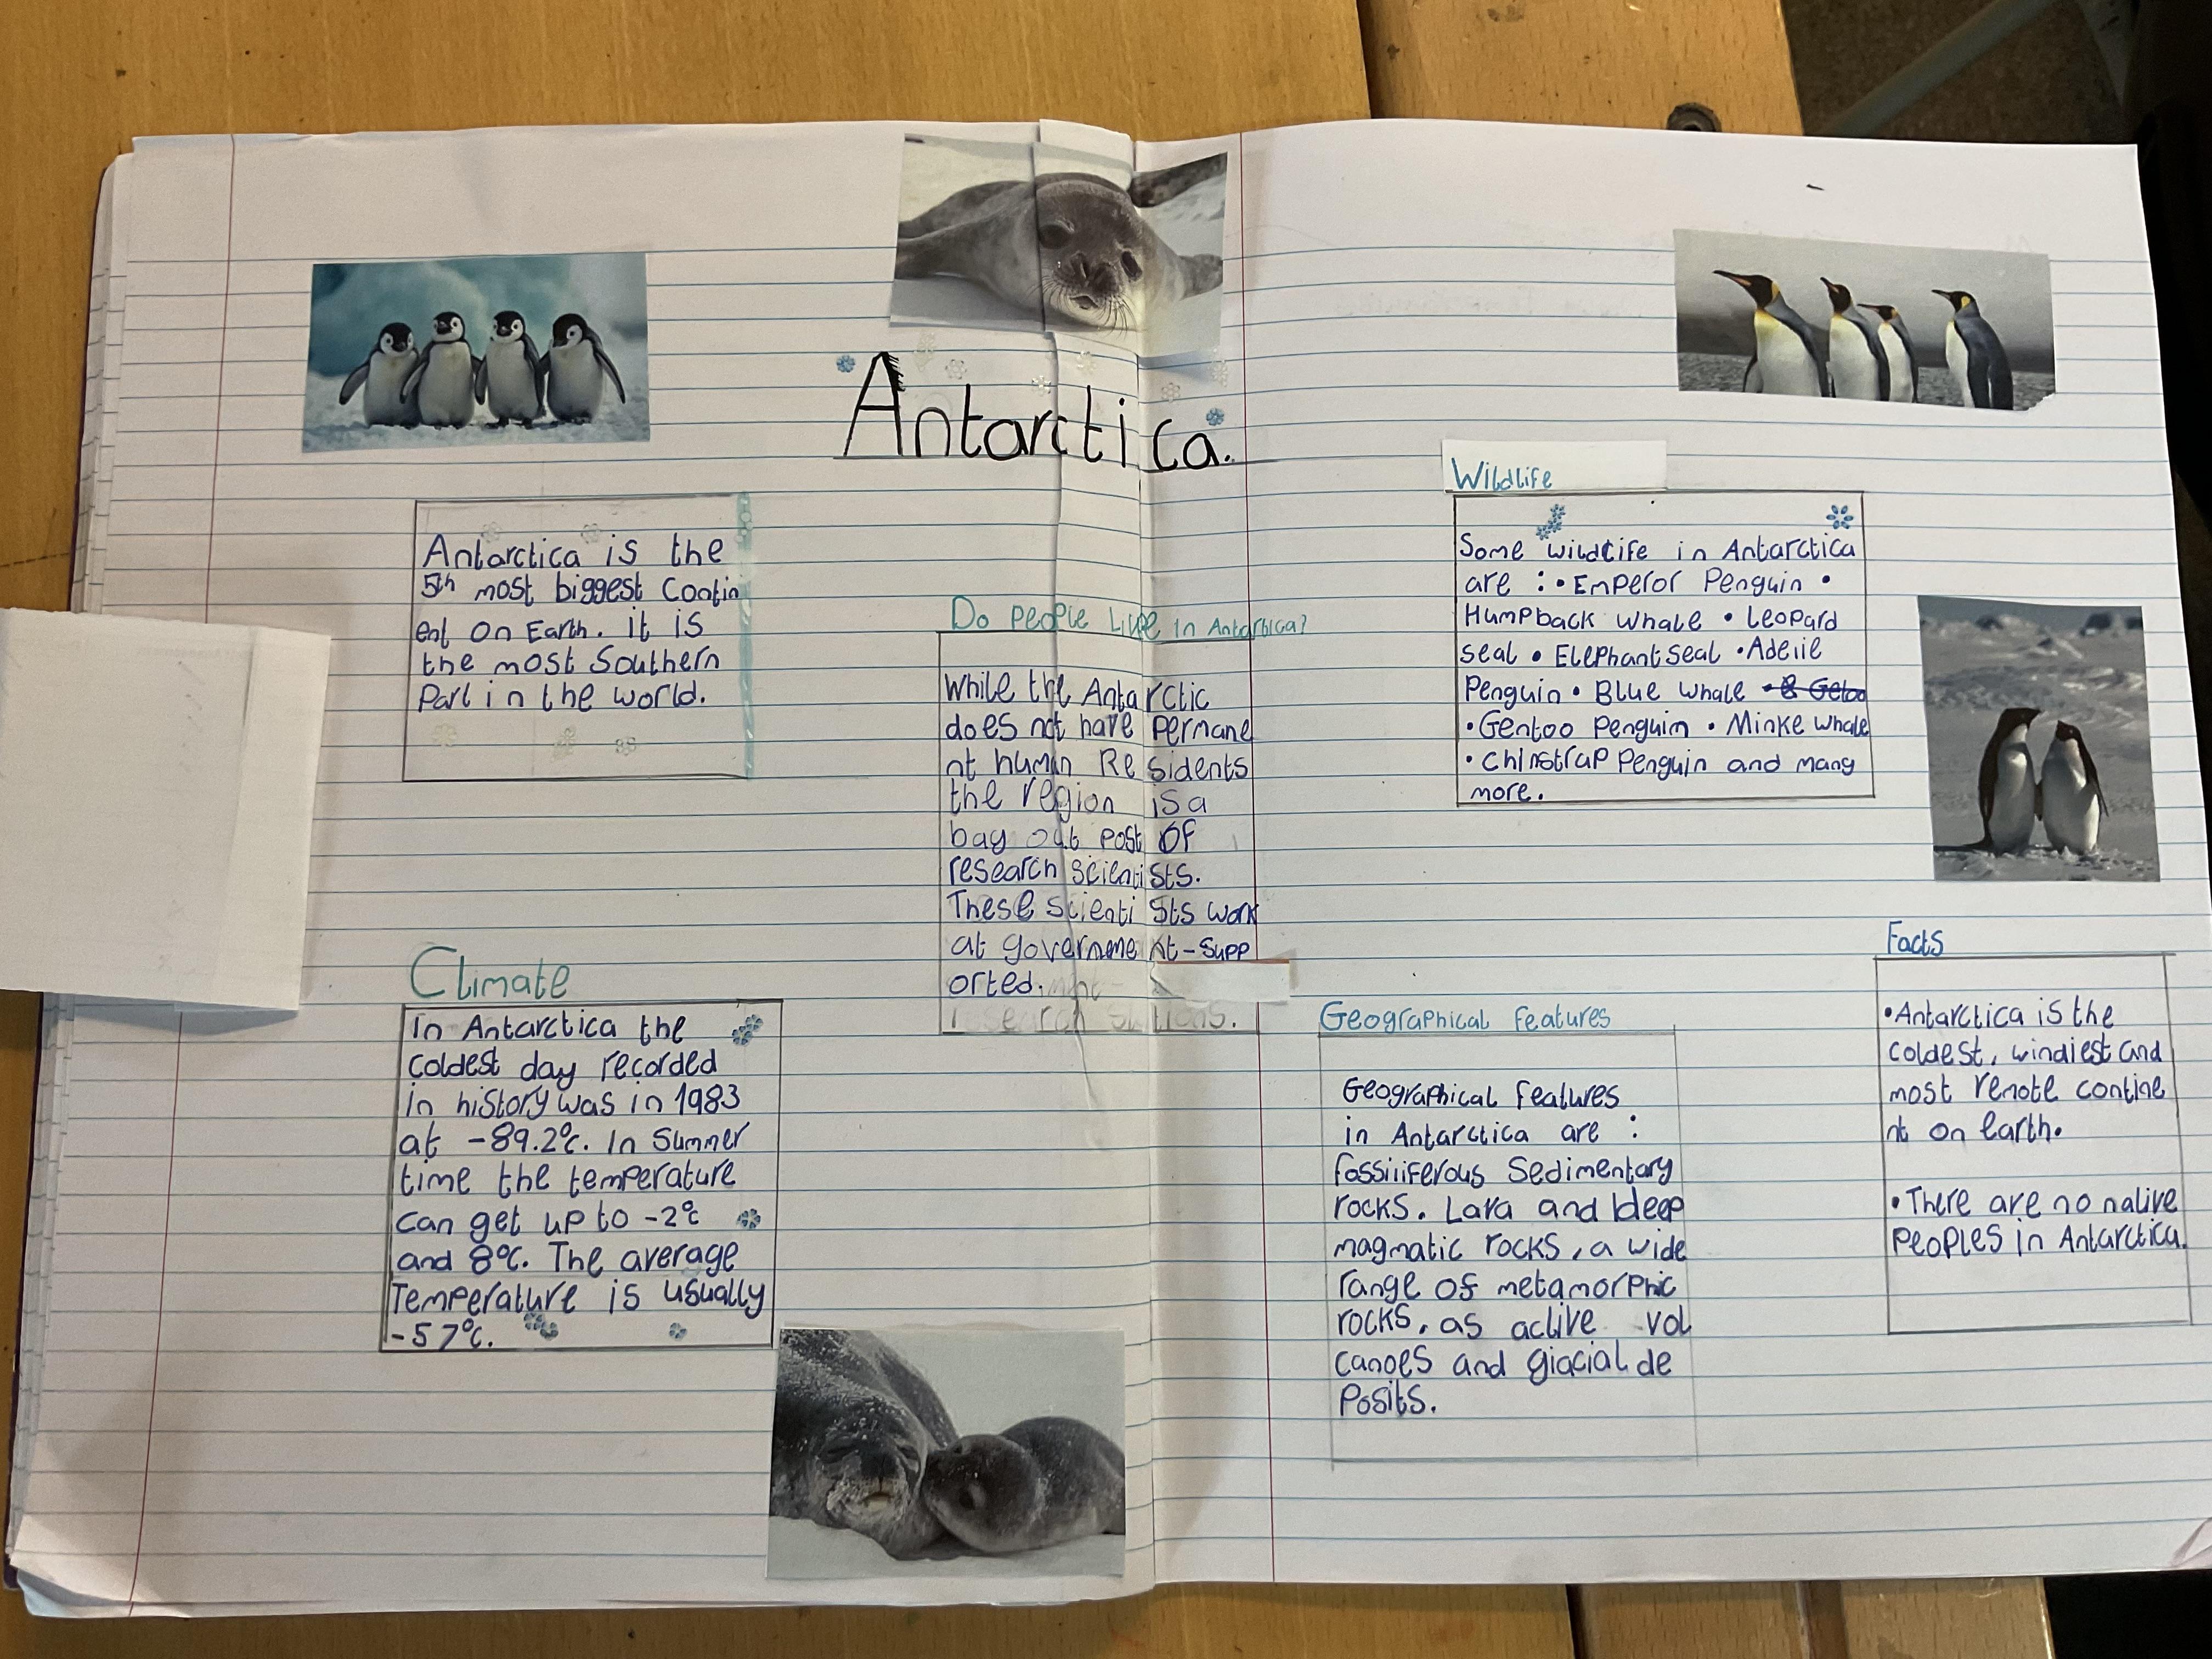 Antarctica.
Antarctica is the
5th most biggest Contin
ent on Earth. it is
the most Southern
Part in the world.
Climate
In Antarctica the
coldest day recorded
in history was in 1983
at -89.2°c. In Summer
time the temperature
can get up to -2°c
and 8°c. The average
Temperature is usually
-57°c.
Do people Live in Antartica?
While the Antarctic
does not have permane
nt human Residents
the region is a
bay out post of
research scientists.
These scientists work
at government-supp
orted.
research stations.
Wildlife
Some wildlife in Antarctica
are : • Emperor Penguin •
Humpback whale • Leopard
seal • Elephant seal • Adelie
Penguin • Blue whale • & Getoo
• Gentoo Penguin • Minke whale
• Chinstrap Penguin and many
more.
Geographical features
Geographical features
in Antarctica are :
fossiliferous Sedimentary
rocks. Lava and deep
magmatic rocks, a wide
range of metamorphic
rocks, as active vol
canoes and glacial de
posits.
Facts
• Antarctica is the
coldest, windiest and
most remote contine
nt on earth.
• There are no native
peoples in Antarctica.